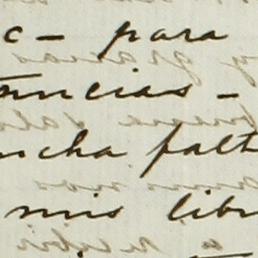 c - para
tancias -
ucha falt
mis libr